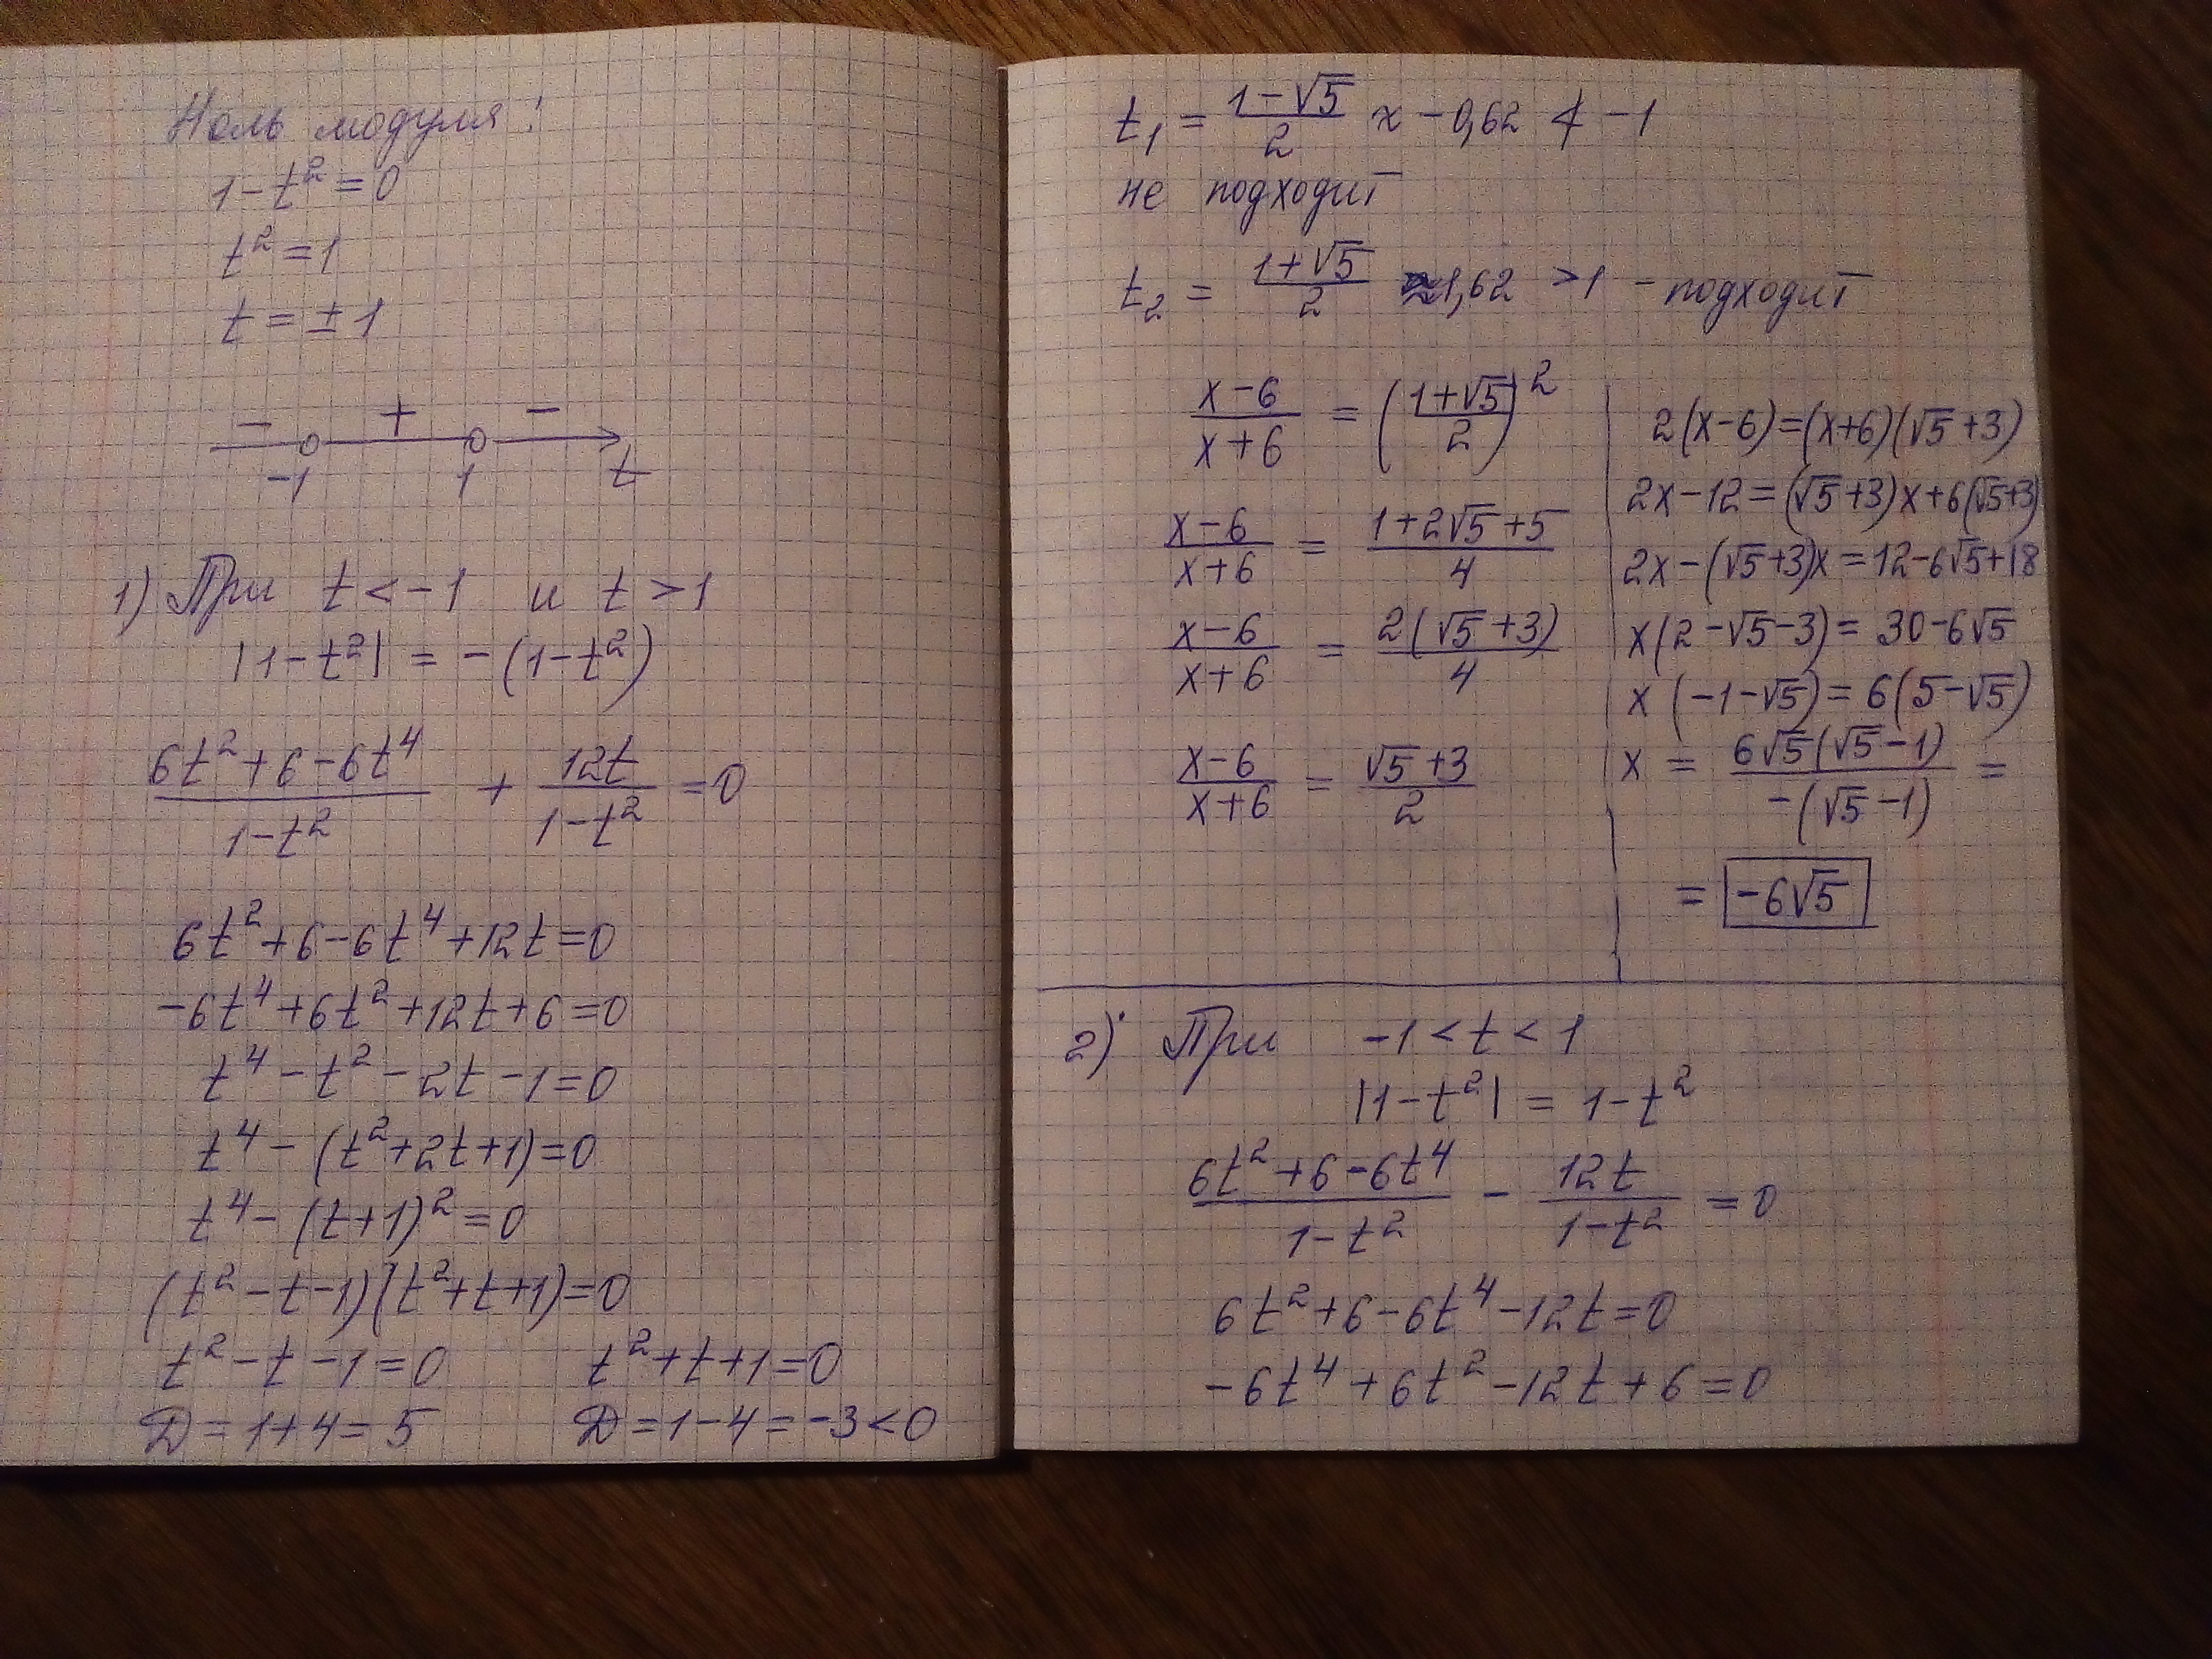 Ноль модуля:
1-t²=0
t²=1
t=±1
- + -
-1 1 t
1) При t<-1 и t>1
|1-t²| = -(1-t²)
(6t²+6-6t⁴)/(1-t²) + 12t/(1-t²) =0
6t²+6-6t⁴+12t=0
-6t⁴+6t²+12t+6=0
t⁴-t²-2t-1=0
t⁴-(t²+2t+1)=0
t⁴-(t+1)²=0
(t²-t-1)(t²+t+1)=0
t²-t-1=0 t²+t+1=0
D=1+4=5 D=1-4=-3<0
t₁ = (1-√5)/2 ≈ -0,62 ≮ -1
не подходит
t₂ = (1+√5)/2 ≈1,62 >1 - подходит
(x-6)/(x+6) = ((1+√5)/2)²
(x-6)/(x+6) = (1+2√5+5)/4
(x-6)/(x+6) = 2(√5+3)/4
(x-6)/(x+6) = (√5+3)/2
2(x-6)=(x+6)(√5+3)
2x-12=(√5+3)x+6(√5+3)
2x-(√5+3)x=12-6√5+18
x(2-√5-3)= 30-6√5
x(-1-√5)=6(5-√5)
x = 6√5(√5-1)/-(√5-1) =
= -6√5
2) При -1<t<1
|1-t²| = 1-t²
(6t²+6-6t⁴)/(1-t²) - 12t/(1-t²) =0
6t²+6-6t⁴-12t=0
-6t⁴+6t²-12t+6=0